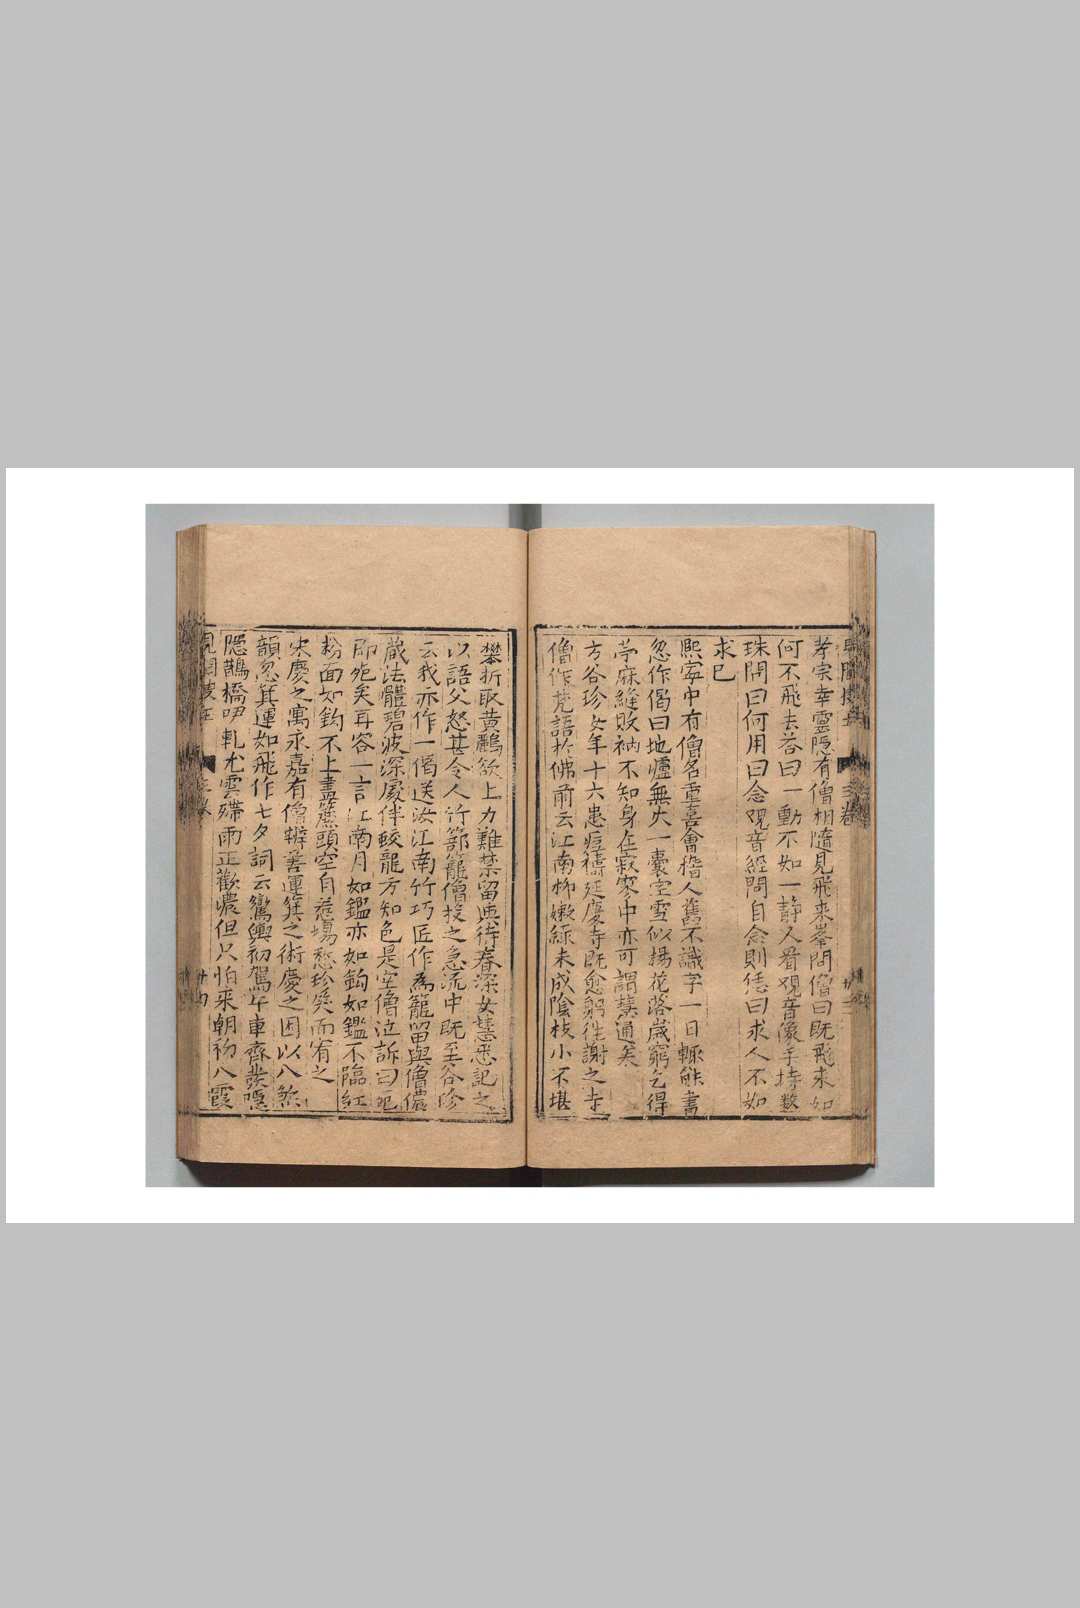 孝宗幸靈隱有僧相隨見飛來峯問僧曰既飛來如
何不飛去荅曰一動不如一靜又看觀音像手持數
珠問曰何用曰念觀音經問自念則恁曰求人不如
求已
熙寧中有僧名重喜會稽人舊不識字一日輙能書
忽作偈曰地爐無火一囊空雪似揚花落歲窮乞得
苧麻縫敗衲不知身在寂寥中亦可謂慧通矣
方谷珍女年十六患痘禱延慶寺既愈躬往謝之寺
僧作梵語於佛前云江南柳嫩綠未成陰枝小不堪
攀折取黃鸝欲上力難禁留與待春深女慧悉記之
以語父怒甚令人竹篰籠僧投之急流中既至谷珍
云我亦作一偈送汝江南竹巧匠作為籠留與僧儂
藏法體碧波深處伴蛟龍方知色是空僧泣訴曰死
即死矣再容一言江南月如鑑亦如鈎如鑑不臨紅
粉面如鈎不上畫簾頭空自惹場愁珍笑而宥之
宋慶之寓永嘉有僧辨善運箕之術慶之因以八煞
韻忽箕運如飛作七夕詞云鸞輿初駕牛車齊發隱
隱鵲橋咿軋尤雲殢雨正歡濃但只怕來朝初八霞